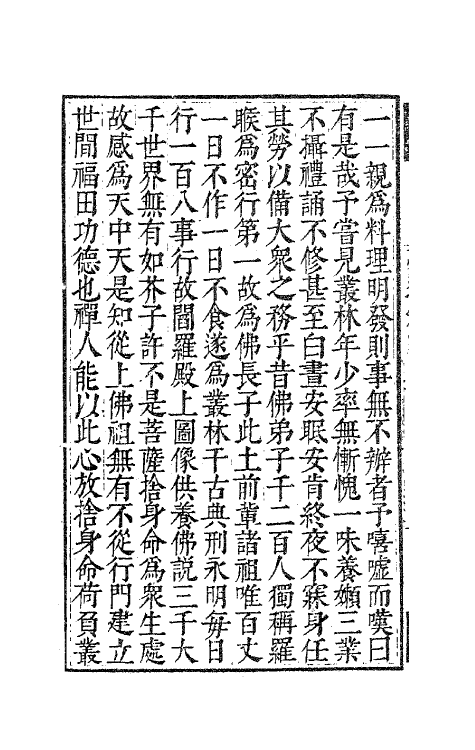 一一親爲料理明發則事無不辦者予噫嘘而嘆曰
有是哉予嘗見叢林年少率無慚愧一味養嬾三業
不攝禮誦不修甚至白晝安眠安肯終夜不寐身任
其勞以備大衆之務乎昔佛弟子千二百人獨稱羅
睺爲密行第一故爲佛長子此土前輩諸祖唯百丈
一日不作一日不食遂爲叢林千古典刑永明每日
行一百八事行故閻羅殿上圖像供養佛說三千大
千世界無有如芥子許不是菩薩捨身命爲衆生處
故感爲天中天是知從上佛祖無有不從行門建立
世間福田功德也禪人能以此心放捨身命荷負叢